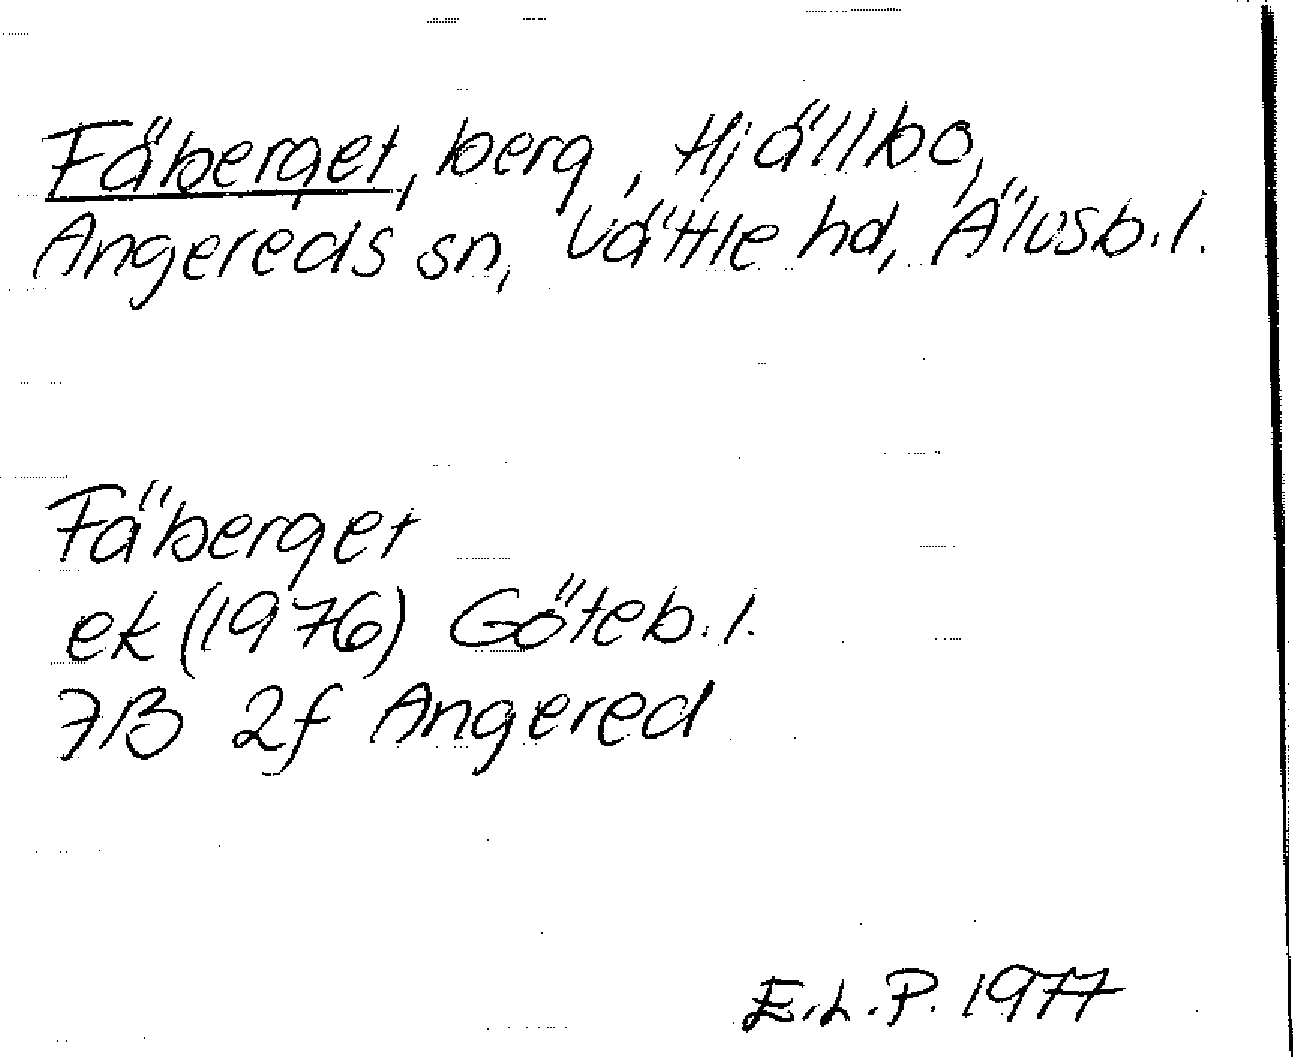 Fäberget, berg, Hjällbo,
Angereds sn, Vättle hd, Älvsb.l.
Fäberget
ek (1976) Göteb.l.
7B 2f Angered
E.L.P. 1977